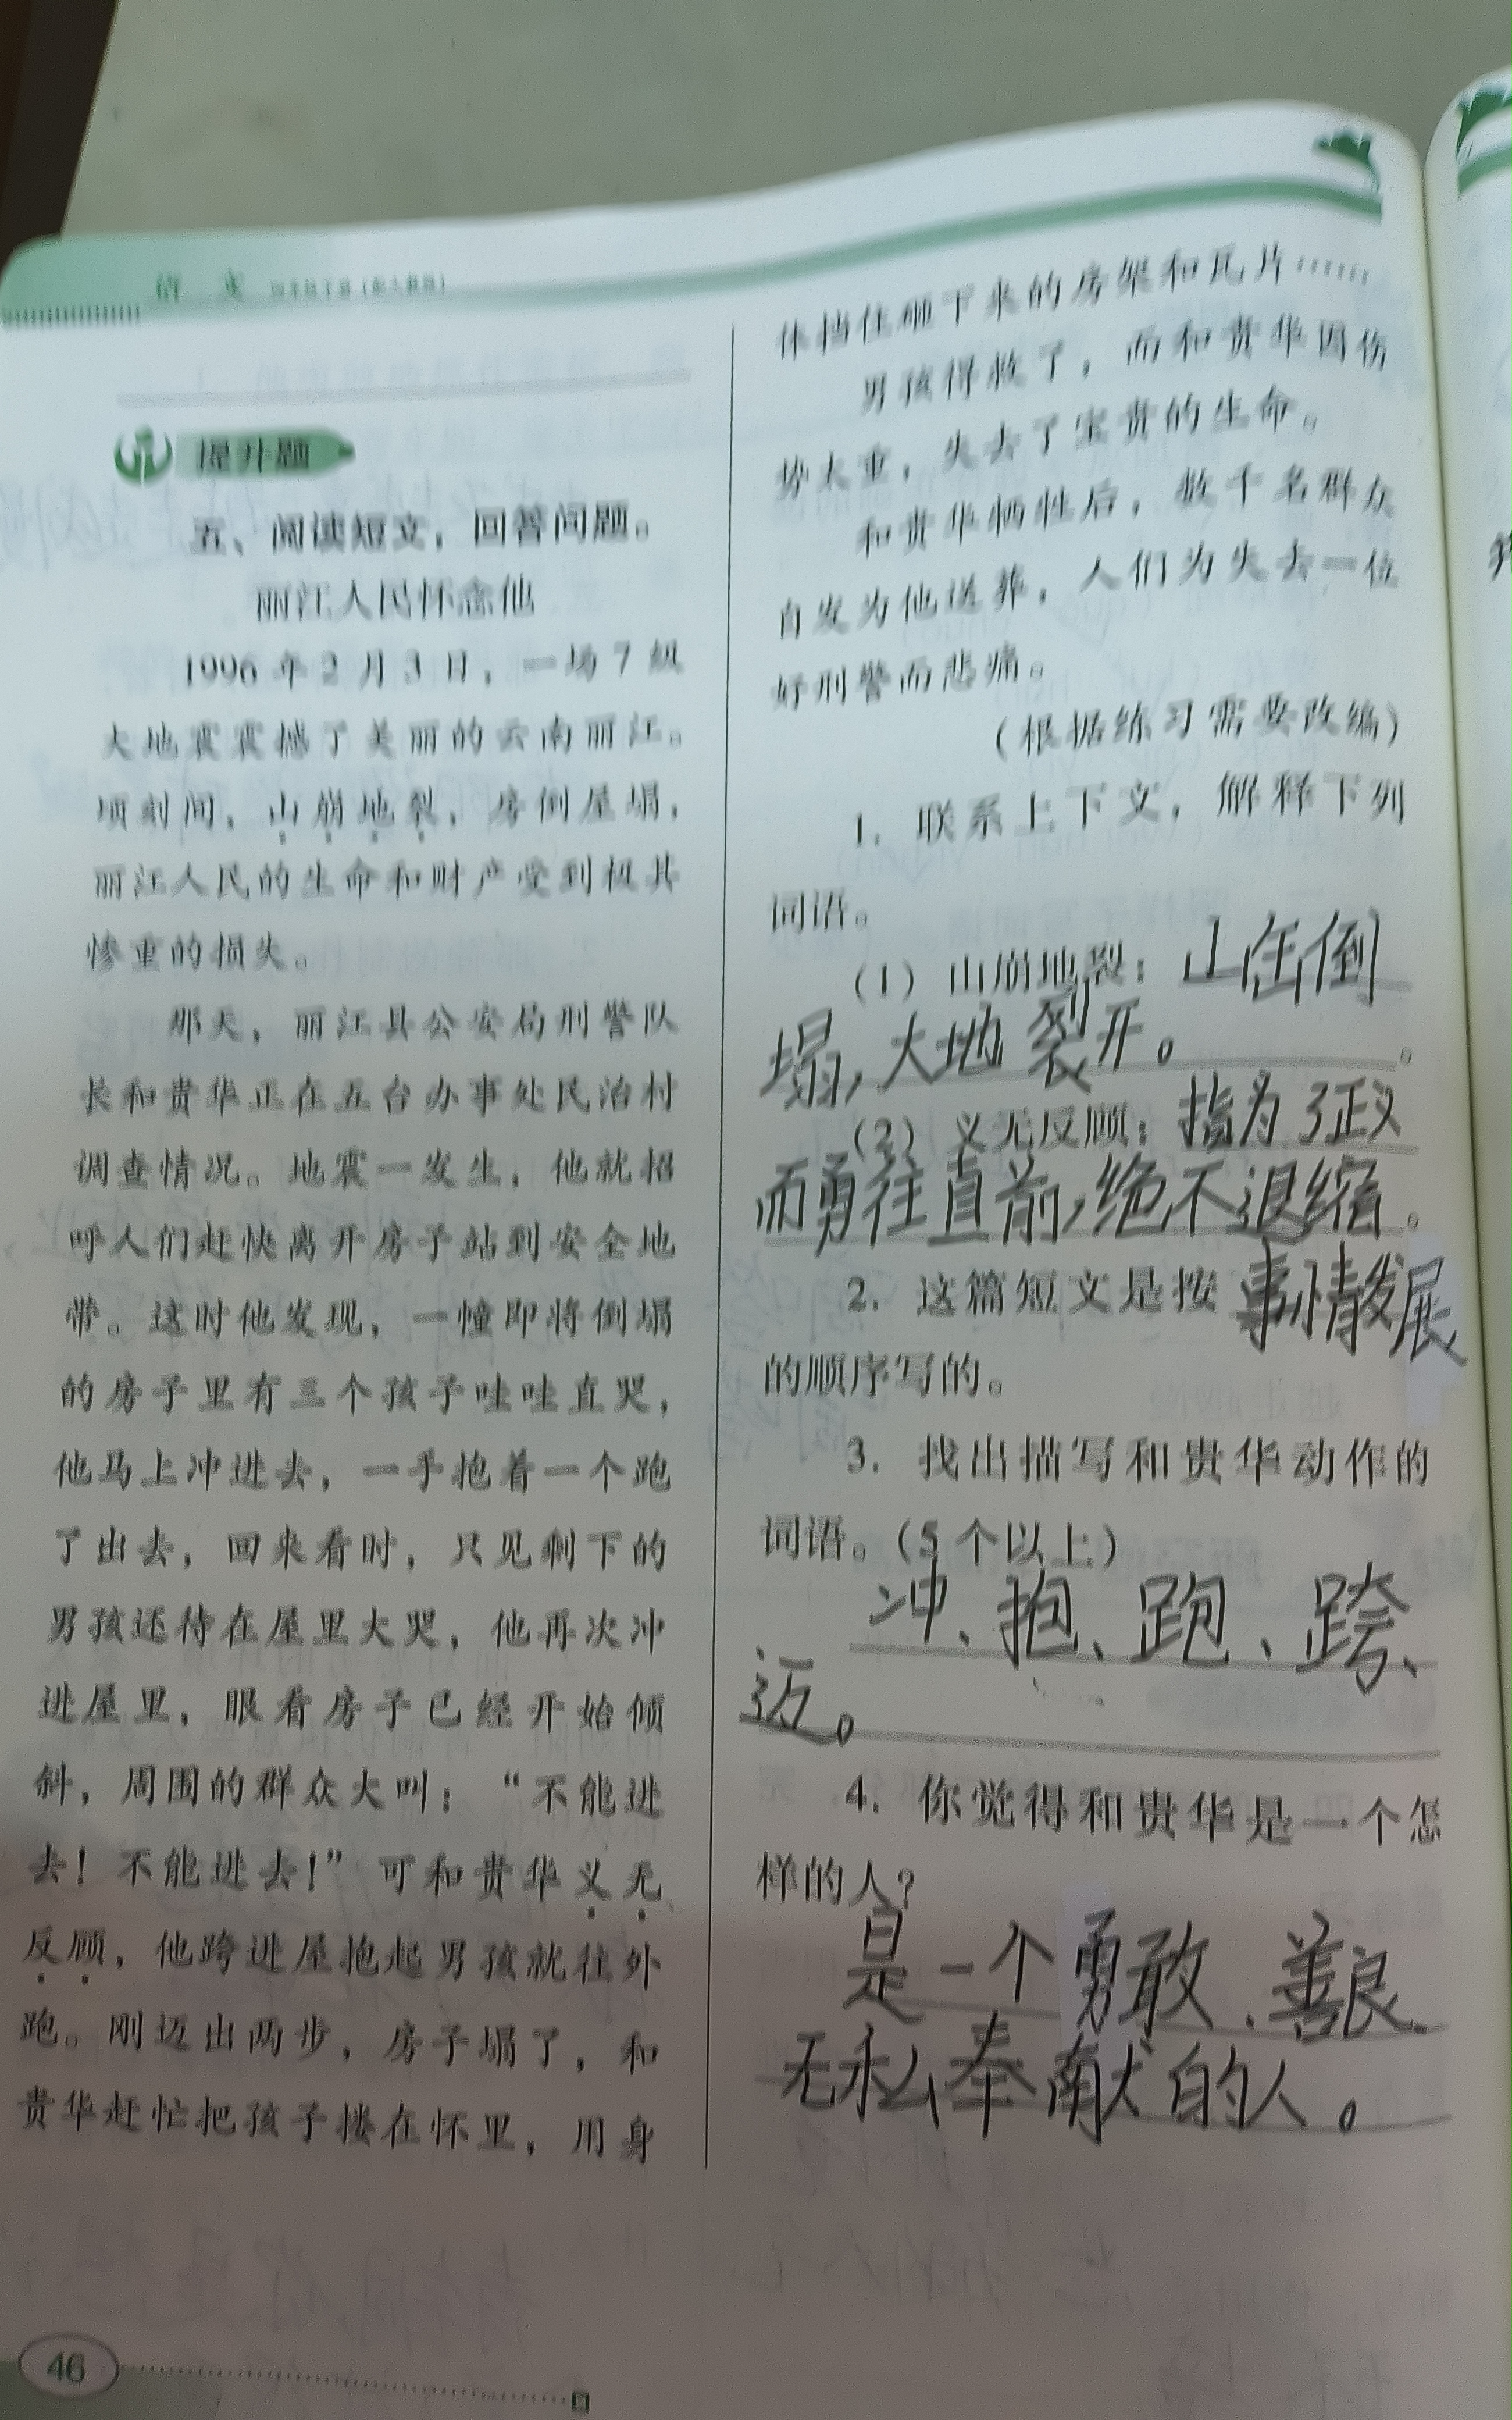 语 文
提升题
五、阅读短文，回答问题。
丽江人民怀念他
1996年2月3日，一场7级
大地震震撼了美丽的云南丽江。
顷刻间，山崩地裂，房倒屋塌，
丽江人民的生命和财产受到极其
惨重的损失。
那天，丽江县公安局刑警队
长和贵华正在五台办事处民治村
调查情况。地震一发生，他就招
呼人们赶快离开房子站到安全地
带。这时他发现，一幢即将倒塌
的房子里有三个孩子哇哇直哭，
他马上冲进去，一手抱着一个跑
了出去，回来看时，只见剩下的
男孩还待在屋里大哭，他再次冲
进屋里，眼看房子已经开始倾
斜，周围的群众大叫：“不能进
去！不能进去！”可和贵华义无
反顾，他跨进屋抱起男孩就往外
跑。刚迈出两步，房子塌了，和
贵华赶忙把孩子搂在怀里，用身
46
体挡住砸下来的房架和瓦片……
男孩得救了，而和贵华因伤
势太重，失去了宝贵的生命。
和贵华牺牲后，数千名群众
自发为他送葬，人们为失去一位
好刑警而悲痛。
（根据练习需要改编）
1. 联系上下文，解释下列
词语。
（1）山崩地裂：山岳倒
塌，大地裂开。。
（2）义无反顾：指为了正义
而勇往直前，绝不退缩。
2. 这篇短文是按事情发展
的顺序写的。
3. 找出描写和贵华动作的
词语。（5个以上）
冲、抱、跑、跨、
迈。
4. 你觉得和贵华是一个怎
样的人？
是一个勇敢、善良、
无私奉献的人。